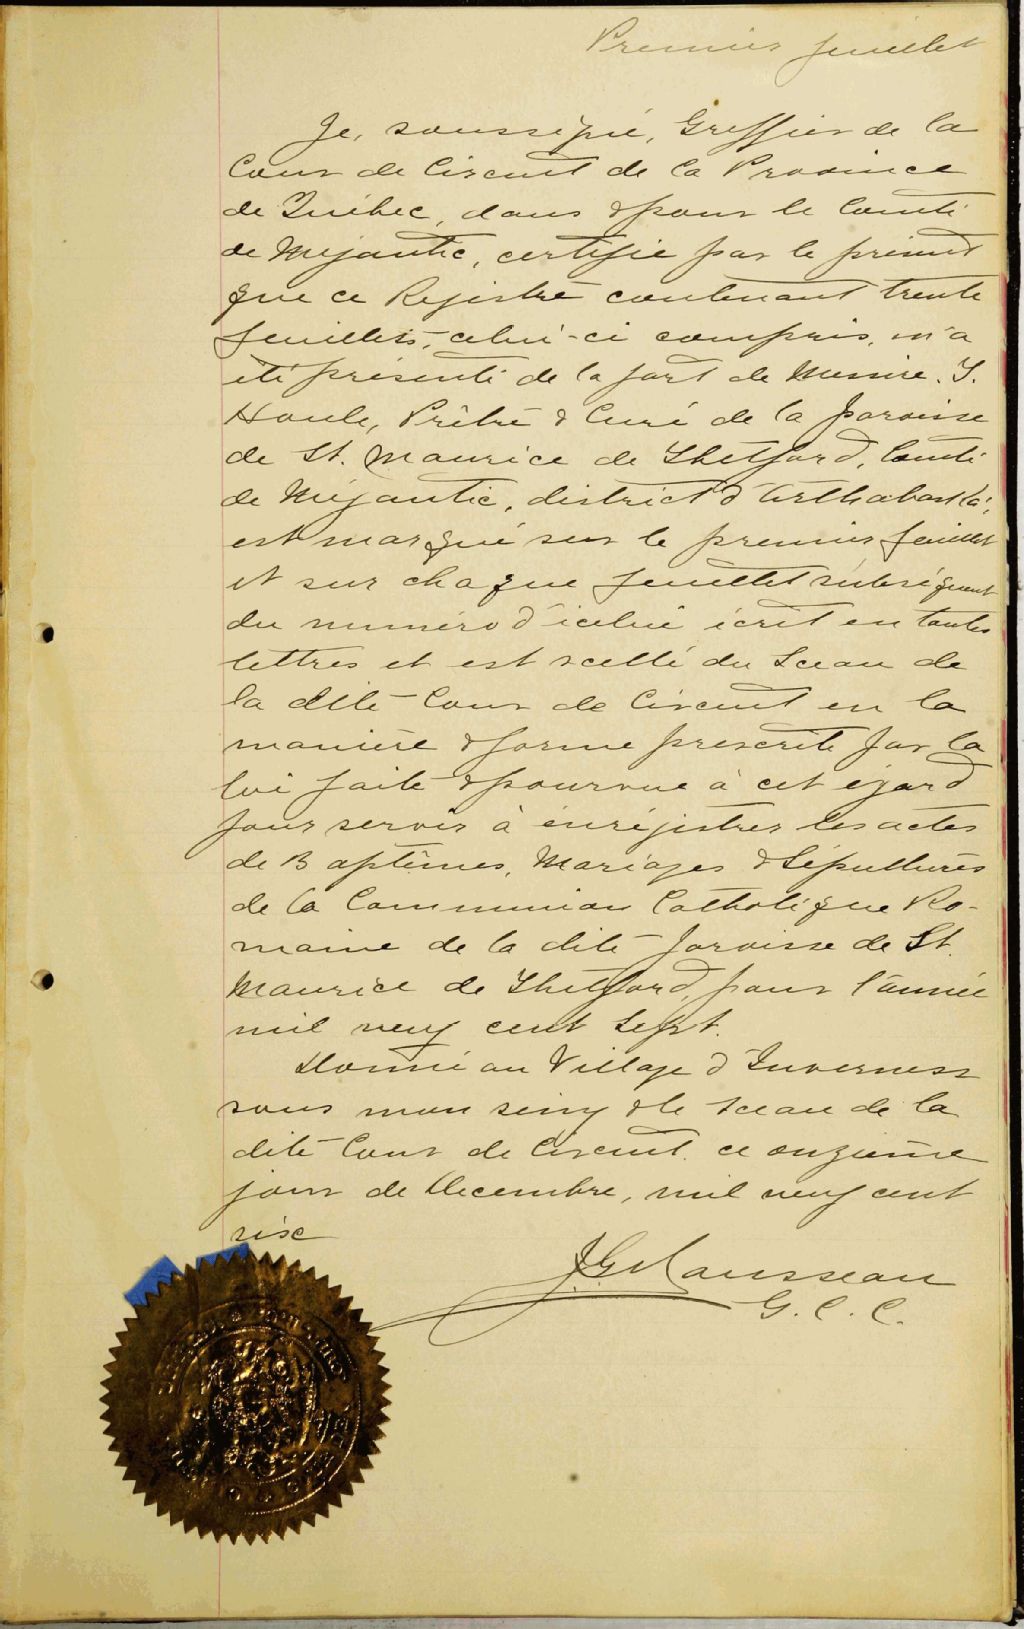 Premier feuillet
Je, soussigné, Greffier de la
Cour de Circuit de la Province
de Québec, dans & pour le Comté
de Mégantic, certifie par le présent
que ce Registre contenant trente
feuillets, celui-ci compris, m'a
été présenté de la part de Messire. J.
Houle, Prêtre & Curé de la paroisse
de St. Maurice de Thetford, Comté
de Mégantic, district d'Arthabaska,
est marqué sur le premier feuillet
et sur chaque feuillet subséquent
du numéro d'icelui écrit en toutes
lettres et est scellé du Sceau de
la dite Cour de Circuit en la
manière & forme prescrite par la
loi faite & pourvue à cet égard
pour servir à enrégistrer les actes
de Baptêmes, Mariages & Sépultures
de la Communion Catholique Ro-
maine de la dite paroisse de St.
Maurice de Thetford, pour l'année
mil neuf cent sept.
Donné au Village d'Inverness
sous mon seing & le sceau de la
dite Cour de Circuit. ce onzième
jour de Decembre, mil neuf cent
six
Rousseau
G. C. C.